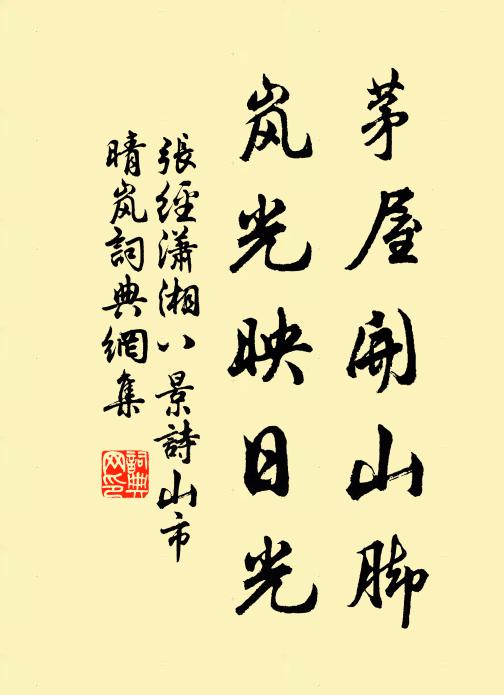 茅屋開山脚
岚光映日光
張經瀟湘八景詩山市
晴岚詞典網集
詞典
网印